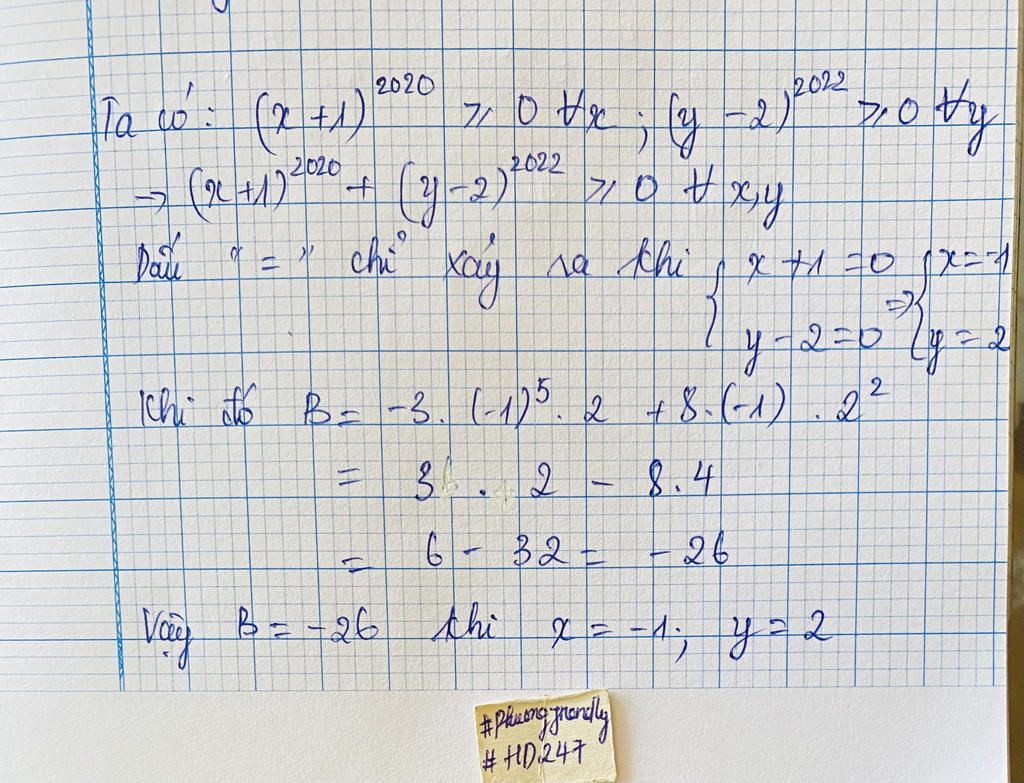 Ta có: (x+1)²⁰²⁰ ⩾ 0 ∀x ; (y-2)²⁰²² ⩾ 0 ∀y
→ (x+1)²⁰²⁰ + (y-2)²⁰²² ⩾ 0 ∀ x,y
Dấu "=" chỉ xảy ra khi { x+1=0 => { x=-1
y-2=0 y=2
Khi đó B = -3.(-1)⁵.2 + 8.(-1).2²
= 3.2 - 8.4
= 6 - 32 = -26
Vậy B = -26 khi x = -1; y = 2
#Phuongfrendly
#HD247